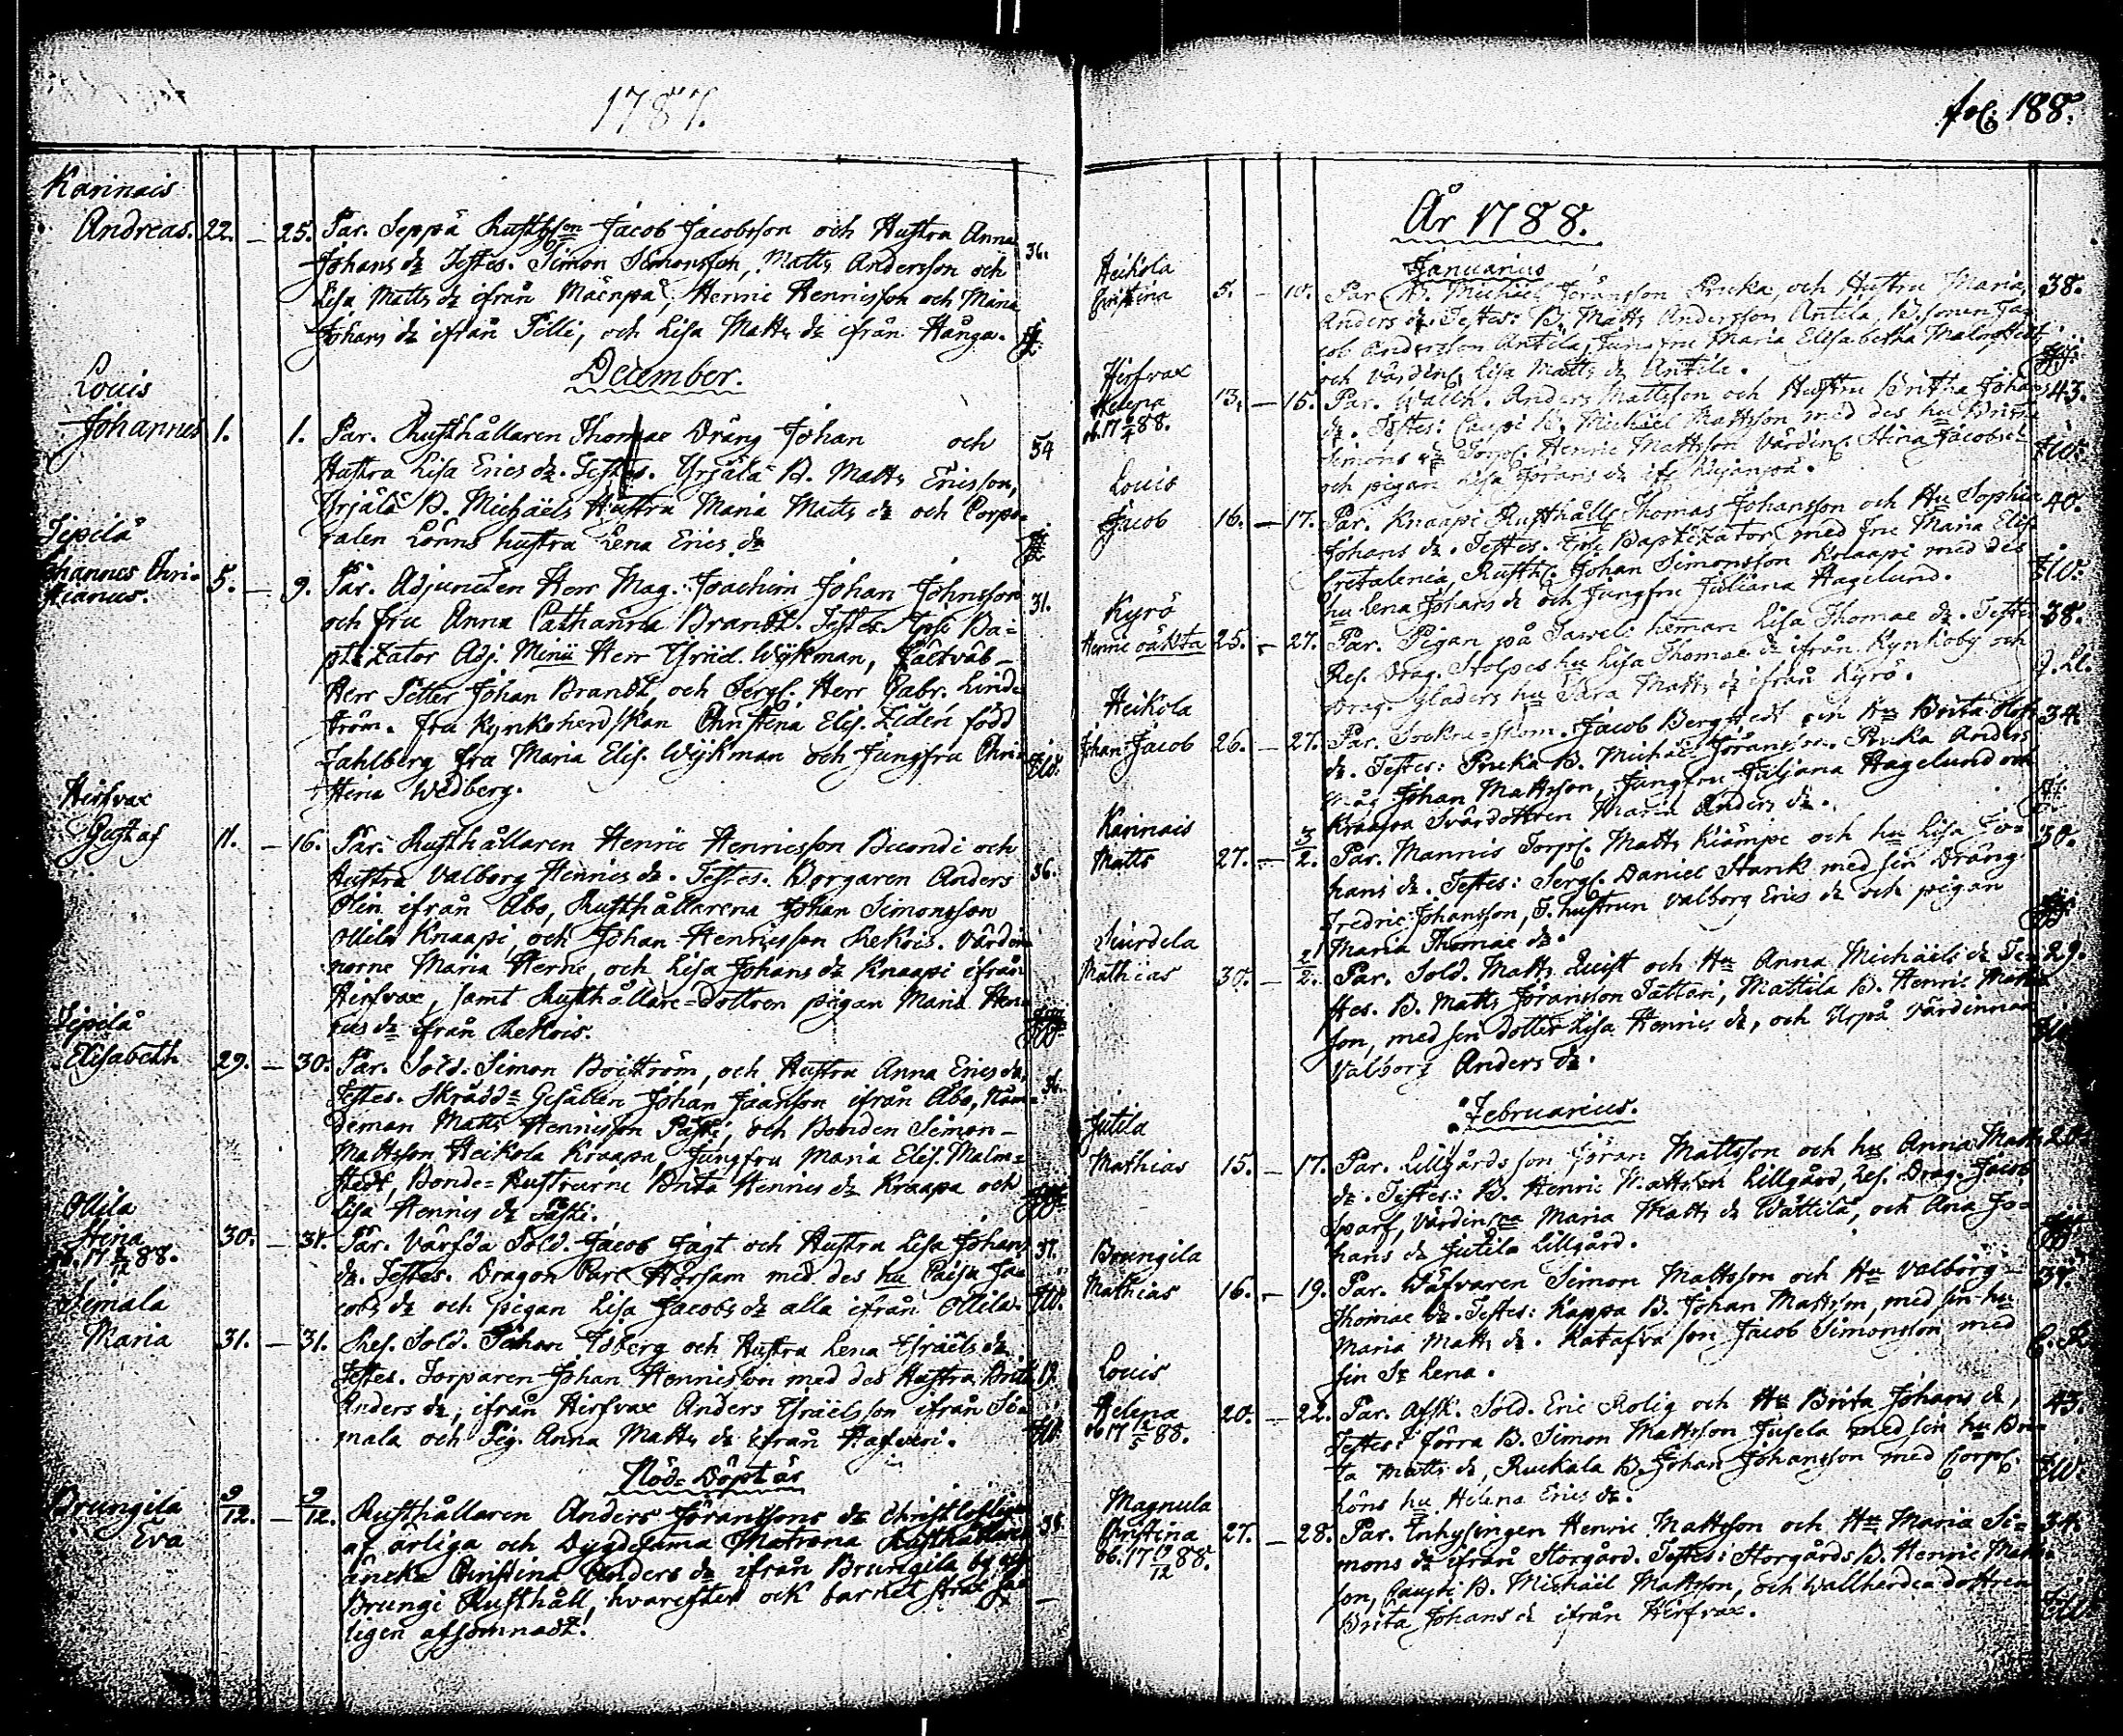 1787.
Karinais
Andreas. 22. — 25. Par. Seppä Rusth.son Jacob Jacobsson och Hustra Anna 36.
Johans dr Testes. Simon Simonsson, Matts Andersson och
Lisa Matts dr ifrån Mäenpä, Henric Henricsson och Maria
Johans dr ifrån Pilli, och Lisa Matts dr ifrån Hånga.
December.
Louis
Johannes 1. 1. Par. Rusthållaren Thomae Dräng Johan och 54
Hustra Lisa Erics dr. Testes. Yrjälä B. Matts Ericsson,
Yrjälä B. Michaels Hustra Maria Matts dr och Corpo-
ralen Lönns hustra Lena Erics dr
Sipilä
Johannes Chri-
stianus. 5. — 9. Par. Adjuncten Herr Mag: Joachim Johan Johnsson 31.
och fru Anna Catharina Brandt. Testes. Ipse Ba-
ptizator Adj. Herr Wijkman,
Herr Petter Johan Brandt, och Serg. Herr Gabr. Lind-
ström. fru Kyrkoherdskan Christina Elis. Zidén född
Zahlberg fru Maria Elis. Wijkman och Jungfru Chri-
stina Wedberg.
Hirfvax
Gustaf 11. — 16. Par. Rusthållaren Henric Henricsson Buondi och 36.
Hustra Valborg Henrics dr. Testes. Borgaren Anders
Olin ifrån Åbo, Rusthållarena Johan Simonsson
Ollila Knaapi, och Johan Henricsson Rekois. Värdin-
norne Maria Herne, och Lisa Johans dr Knaapi ifrån
Hirfvax, samt Rusthållare-dottren pigan Maria Hen-
rics dr ifrån Rekois.
Sipilä
Elisabeth 29. — 30. Par. Sold. Simon Boström, och Hustra Anna Erics dr. 36.
Testes. Skrädd- Gesällen Johan ifrån Åbo, Näm-
deman Matts Henricsson Pästi, och Bonden Simon
Mattsson Heikola Kraapa, Jungfru Maria Elis. Malm-
stedt, Bonde-Hustrurne Brita Henrics dr Kraapa och
Lisa Henrics dr Pästi.
Ollila
Stina 30. — 31. Par. Värfda Sold. Jacob Jägt och Hustra Lisa Johans 37.
ob. 17 88. dr. Testes. Dragon Carl Hörsam med des hu Caisa Ja-
cobs dr och pigan Lisa Jacobs dr alla ifrån Ollila.
Simala
Maria 31. — 31. Res. Sold. Johan Idberg och Hustra Lena Israëls dr 19.
Testes. Torparen Johan Henricsson med des Hustra Brita
Anders dr, ifrån Hirfvax Anders Israëlsson ifrån Si-
mala och Pig. Anna Matts dr ifrån Hafveri.
Nöd-Döpt är
Brungila
Eva 9/12. — 9/12. Rusthållaren Anders Göranssons dr Christlofligen 38
af ärliga och Dygdesama Matrona Rusthållare
änckа Christina Anders dr ifrån Brungila by och
Brungi Rusthåll, hvarefter ock barnet strax sa-
ligen afsomnadt.
fol. 188.
År 1788.
Januarius
Heikola
Christina 5. — 10. Par. B. Michael Göransson Pruka, och Hustru Maria 38.
Anders dr. Testes: B. Matts Andersson Antila, B.sonen Ja-
cob Andersson Antila, Jungfru Maria Elisabetha Malmstedt
och Värdin. Lisa Matts dr Antila.
Hirfvax
Helena 13. — 15. Par. Wallh. Anders Mattsson och Hustru Britha Johans 43.
ob. 17 88. dr. Testes: Caupi B. Michael Mattsson med des hu Brita
Simons dr Torp. Henric Mattsson Värdin. Stina Jacobs dr
och pigan Lisa Görans dr
Louis
Jacob 16. — 17. Par. Knaapi Rusthålls Thomas Johansson och Hu Sophia 40.
Johans dr. Testes. Ipse Baptizator med fru Maria Elis.
Cretalenia, Rusth. Johan Simonsson Knaapi med des
hu Lena Johans dr och Jungfru Juliana Hagelund.
Kyrö
Henric oäkta 25. — 27. Par. Pigan på heman Lisa Thomae dr. Testes 38.
Res. Drag. Stolpes hu Lisa Thomae dr ifrån Kynhioby och
Drag. Gladers hu Sara Matts dr ifrån Kyrö.
Heikola
Johan Jacob 26. — 27. Par. Sockne-skom. Jacob Bergstedt och Hu Brita 34.
dr. Testes: Pruka B. Michael Göransson. Pruka Anders
Måg Johan Mattsson, Jungfru Juliana Hagelund och
Kraapa Svärdottren Maria Anders dr.
Karinais
Matts 27. — 3/2. Par. Mannis Torp. Matts Kiämpe och hu Lisa Jo- 30.
hans dr. Testes: Serg. Daniel Stark med sin Dräng
Fredric Johansson, S.hustrun Valborg Erics dr och pigan
Maria Thomae dr.
Suurdela
Mathias 30. — 2/2. Par. Sold. Matts Quist och Hu Anna Michaels dr Te- 29.
stes. B. Matts Göransson Tattari, Mattila B. Henric Matts-
son, med sin dotter Lisa Henrics dr, och Uspä Värdinnan
Valborg Anders dr.
Februarius.
Jutila
Mathias 15. — 17. Par. Lillgårds son Göran Mattsson och hu Anna Matts 20.
dr. Testes: B. Henric Mattsson Lillgård, Res. Drag. Jacob
Svarf, Värdinnan Maria Matts dr Wättilä, och Ana Jo-
hans dr Jutila Lillgård.
Brungila
Mathias 16. — 19. Par. Wäfvaren Simon Mattsson och Hu Valborg 34.
Thomae dr. Testes: Kappa B. Johan Mattsson, med sin hu
Maria Matts dr. Katafva son Jacob Simonsson med
sin Sr Lena.
Louis
Helena 20. — 22. Par. Afsk. Sold. Eric Rolig och Hu Brita Johans dr, 43.
ob. 17 /5 88. Testes: Jörra B. Simon Mattsson Jusela med sin hu Bri-
ta Matts dr, Ruckala B. Johan Johansson med Corp.
Löns hu Helena Erics dr.
Magnula
Christina 27. — 28. Par. Inhysingen Henric Mattsson och Hu Maria Si- 34.
ob. 17 19/12 88. mons dr ifrån Storgård. Testes: Storgårds B. Henric Matts-
son, Caupi B. Michaël Mattsson, och Wallherdedottren
Brita Johans dr ifrån Hirfvax.